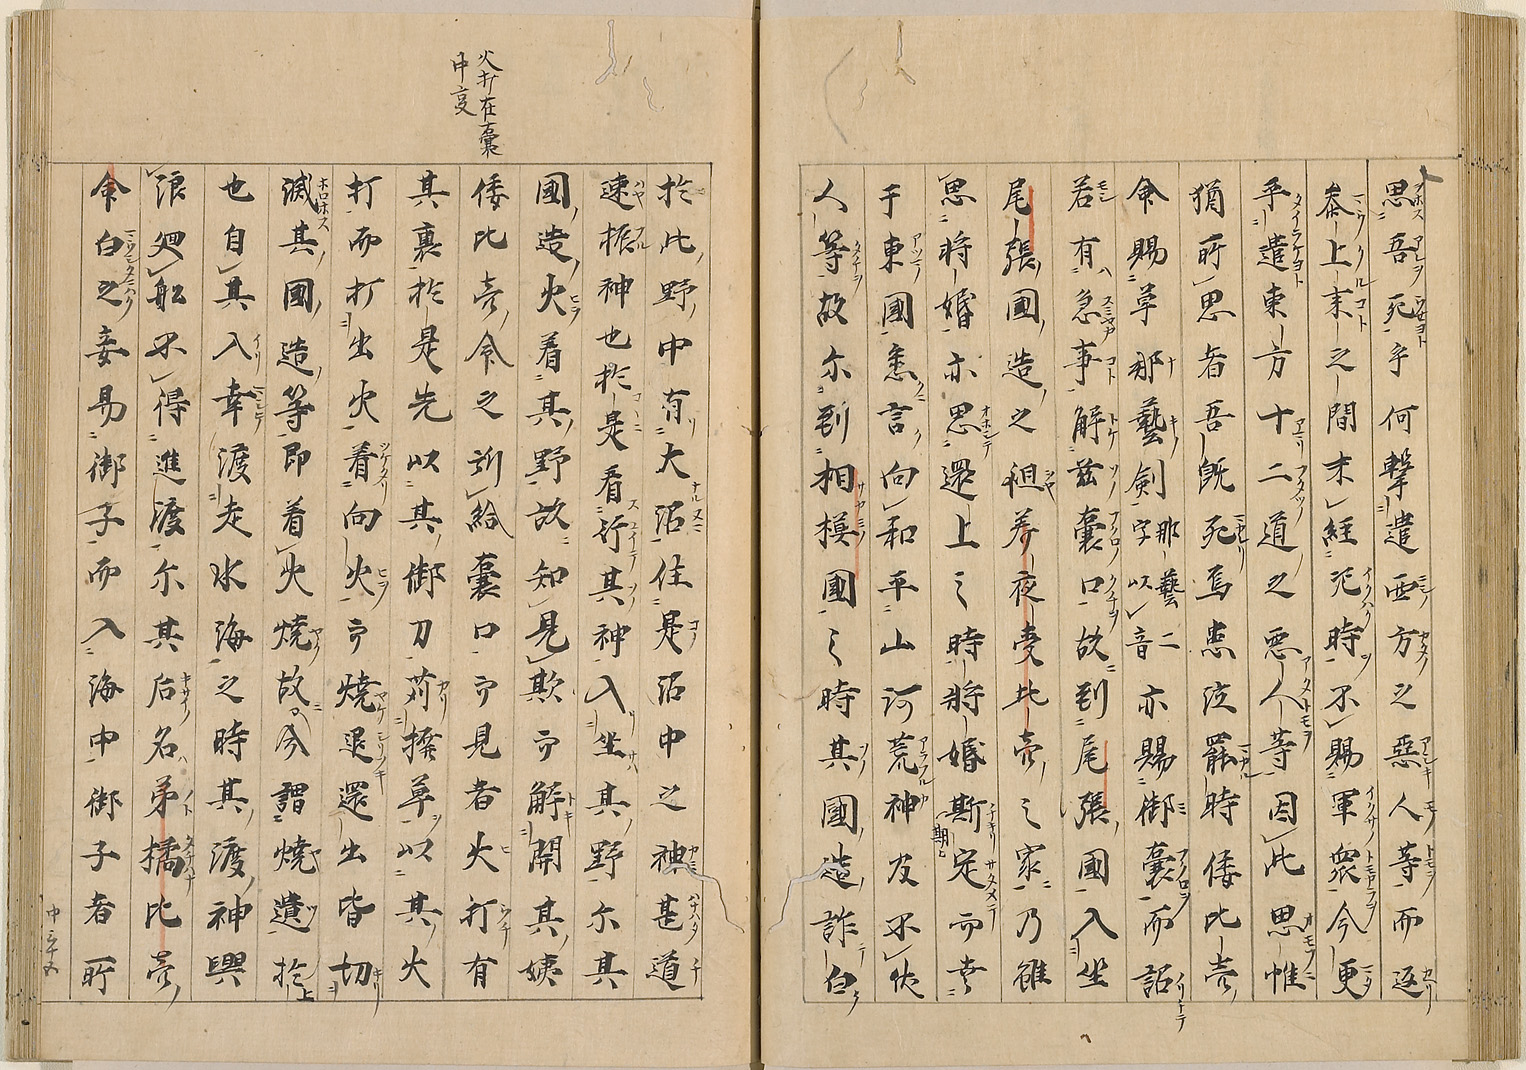 思吾死乎何撃遣西方之惡人等而返
叅上来之間未経㡬時不賜軍衆今更
平遣東方十二道之悪人等因此思惟
猶所思者吾既死焉患泣罷時倭比賣
命賜草那藝剣那藝二字以音亦賜御囊而詔
若有急事解茲囊口故到尾張國入坐
尾張國造之祖美夜受比賣之家乃雖
思将婚亦思還上之時将婚期定而幸
于東國悉言向和平山河荒神及不伏
人等故尓到相摸國之時其國造詐白
火打在囊
中亥
於此野中有大沼住是沼中之神甚道
速振神也於是看行其神入坐其野尓其
國造火着其野故知見欺而解開其姨
倭比賣命之所給囊口而見者火打有
其裏於是先以其御刀苅撥草以其火
打而打出火着向火而焼退還出皆切
滅其國造等即着火焼故今謂焼遺於
也自其入幸渡走水海之時其渡神興
浪廻船不得進渡尓其后名弟橘比賣
命白之妾易御子而入海中御子者所
中三十五